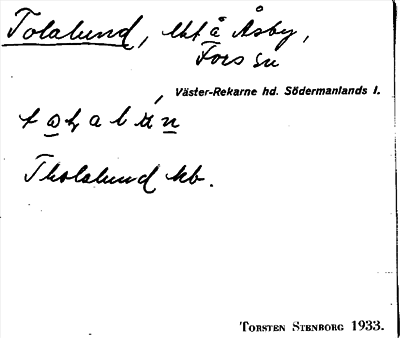 Tolalund, lht å Åsby,
Fors sn
Väster-Rekarne hd. Södermanlands l.
Tholalund kb.
TORSTEN STENBORG 1933.